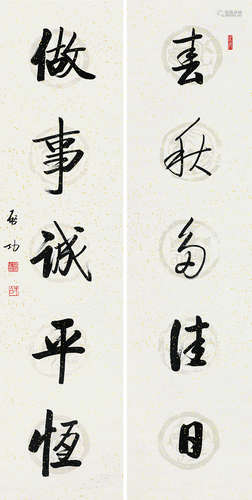 春秋多佳日
做事诚平恒
启功